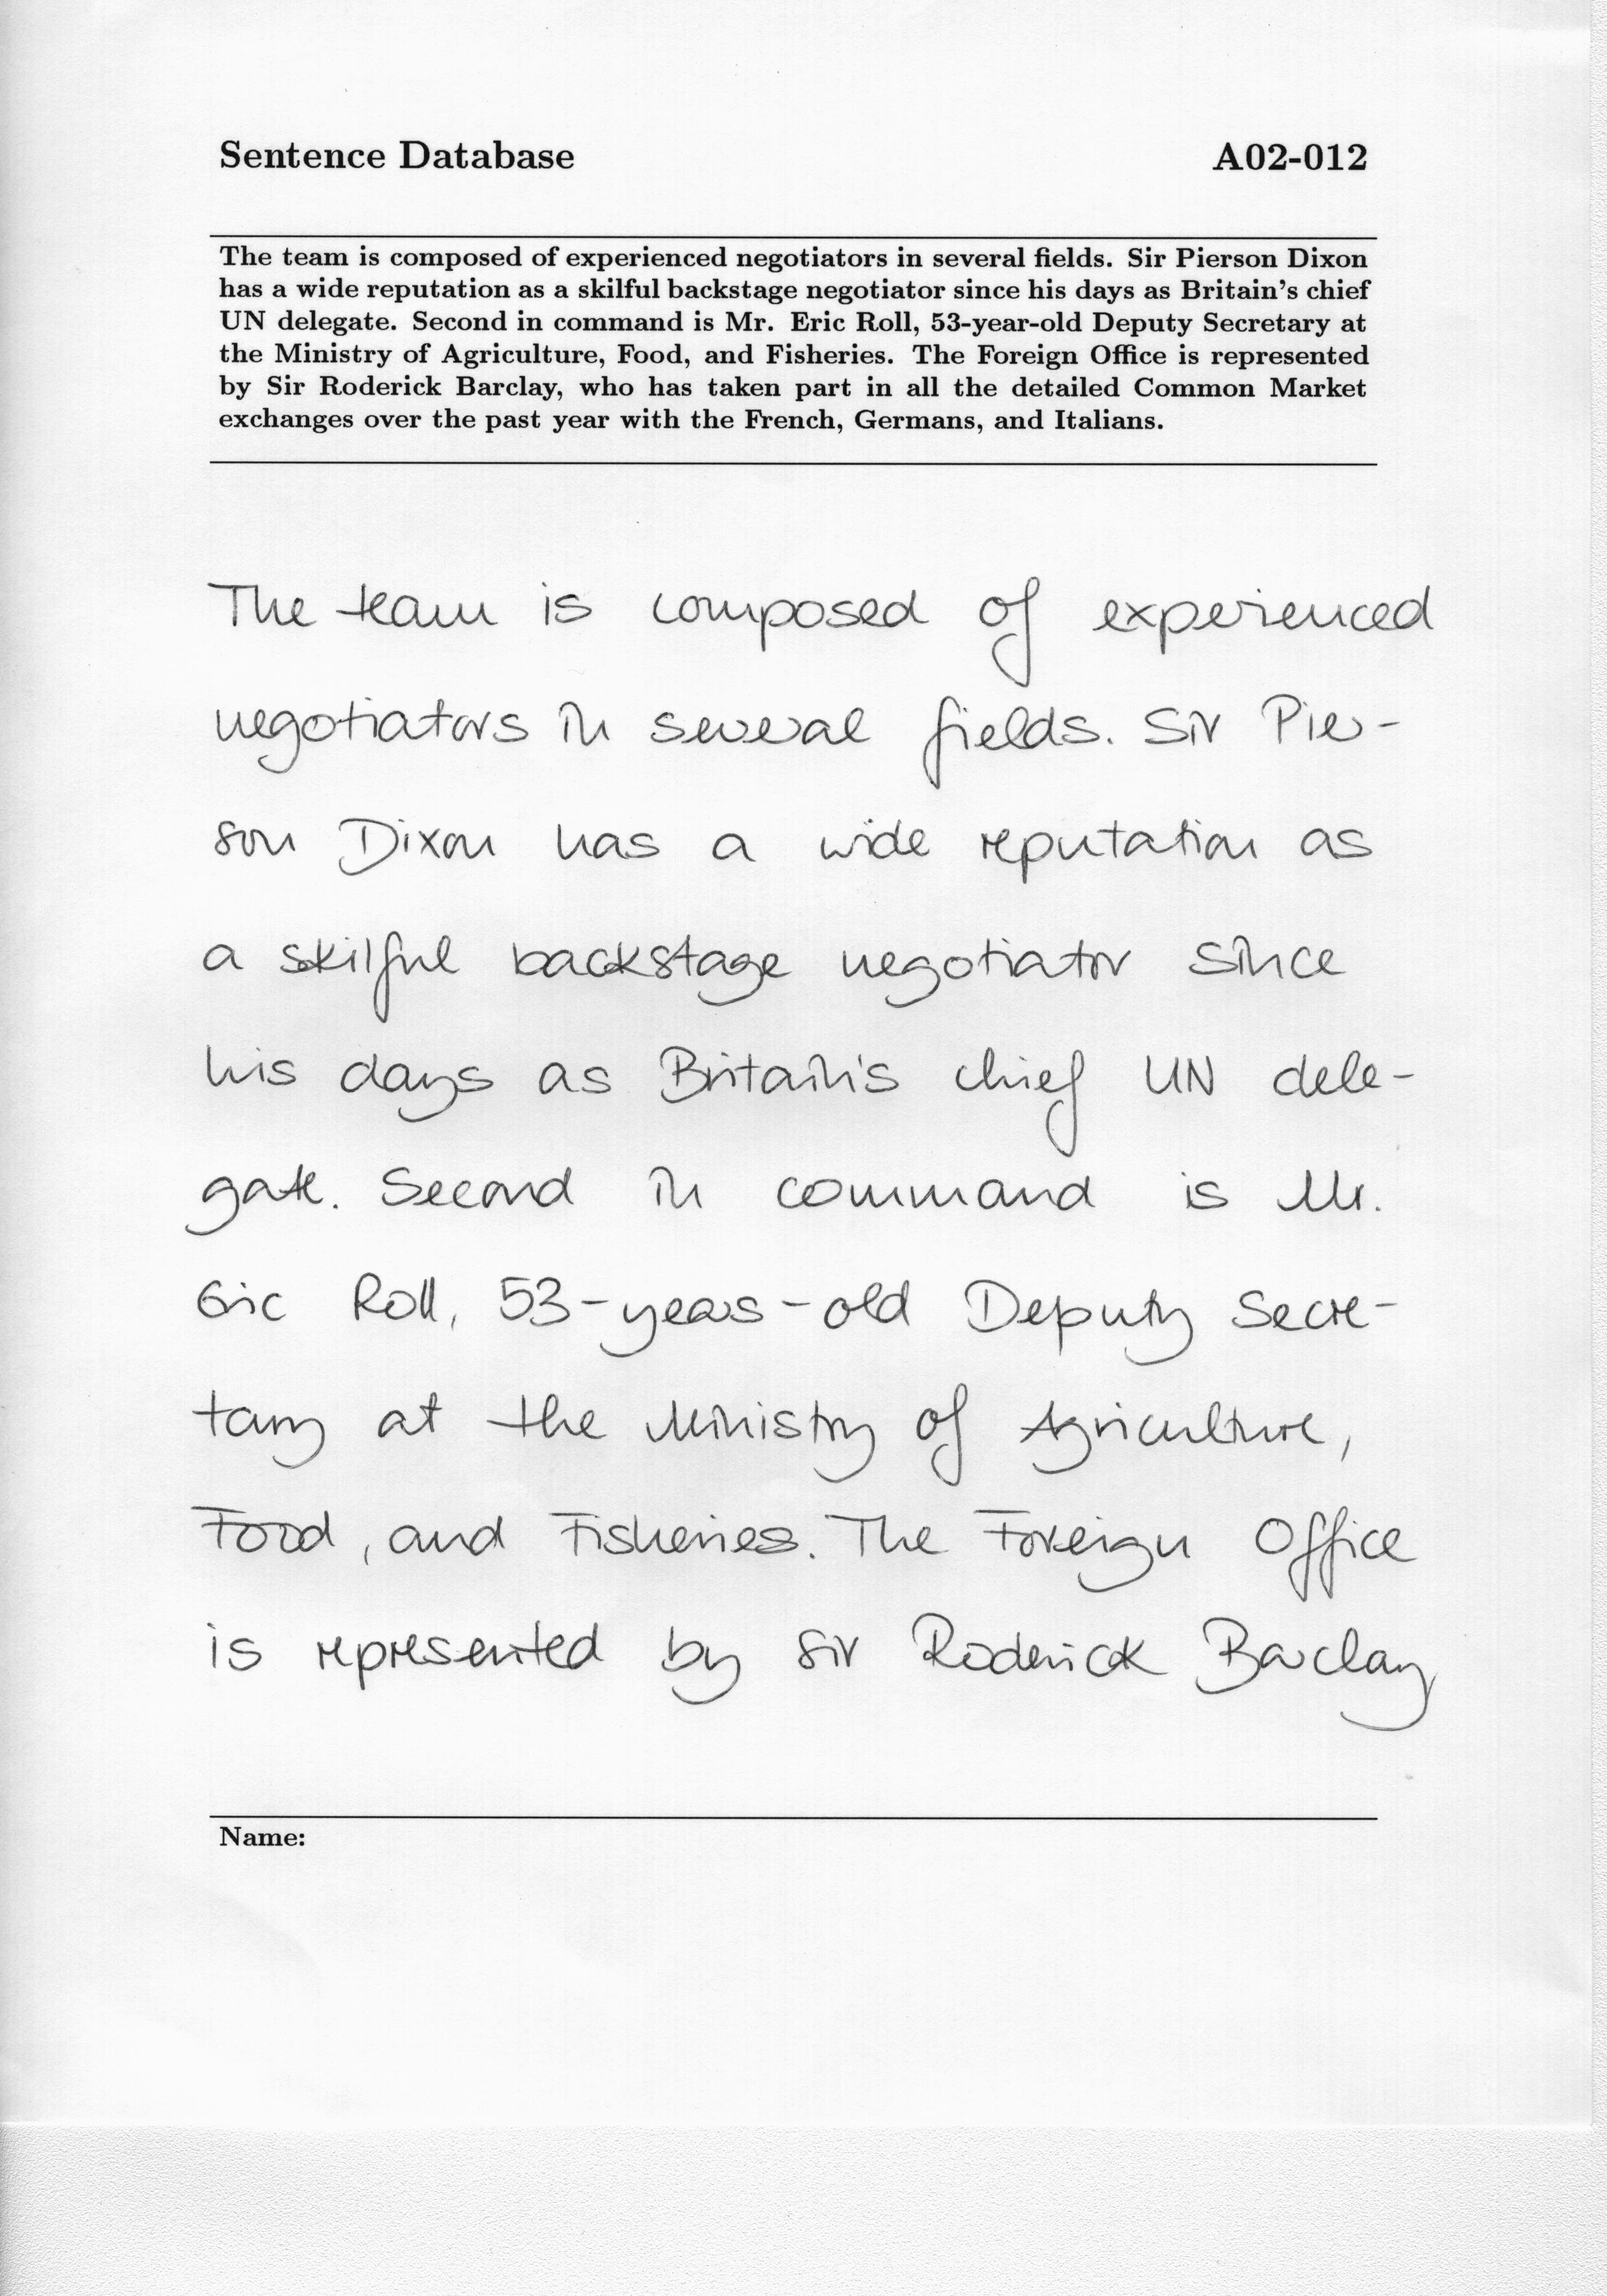 Sentence Database
A02-012
The team is composed of experienced negotiators in several fields. Sir Pierson Dixon
has a wide reputation as a skilful backstage negotiator since his days as Britain's chief
UN delegate. Second in command is Mr. Eric Roll, 53-year-old Deputy Secretary at
the Ministry of Agriculture, Food, and Fisheries. The Foreign Office is represented
by Sir Roderick Barclay, who has taken part in all the detailed Common Market
exchanges over the past year with the French, Germans, and Italians.
The team is composed of experienced
negotiators in several fields. Sir Pier-
son Dixon has a wide reputation as
a skilful backstage negotiator since
his days as Britain's chief UN dele-
gate. Second in command is Mr.
Eric Roll, 53-years-old Deputy Secre-
tary at the Ministry of Agriculture,
Food, and Fisheries. The Foreign Office
is represented by Sir Roderick Barclay
Name: